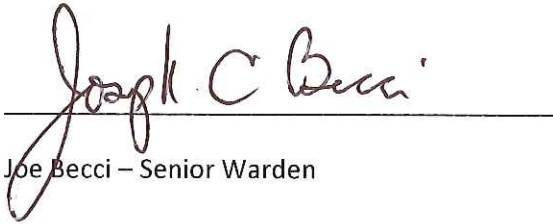 Joseph C Becci
Joe Becci – Senior Warden